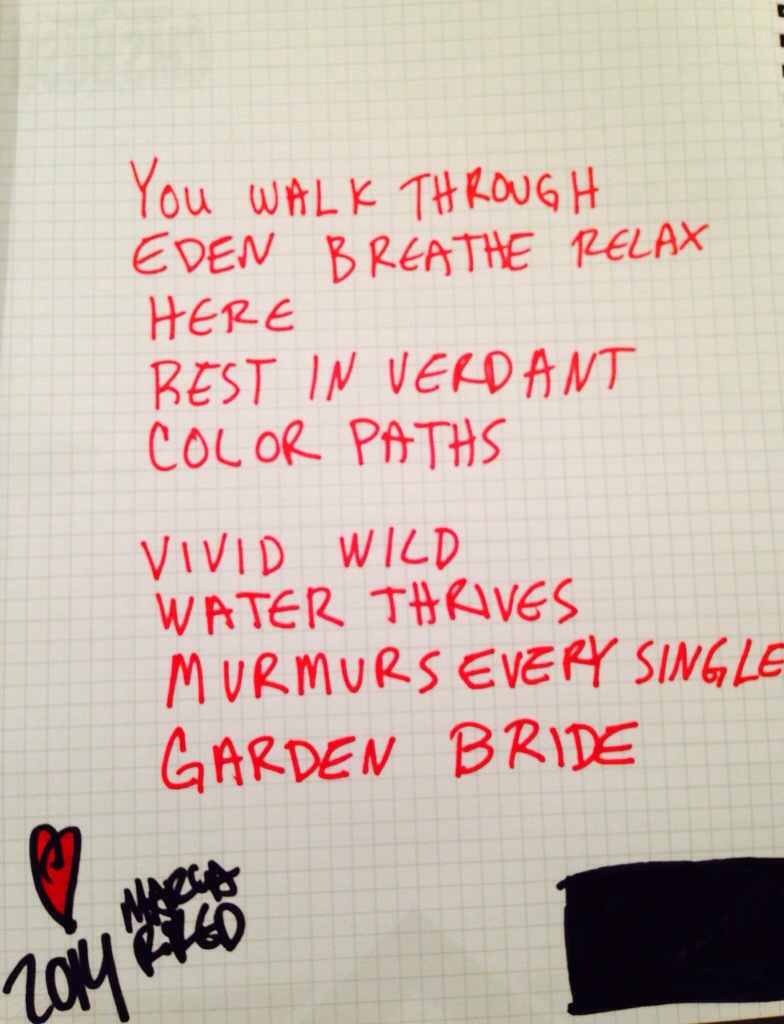 YOU WALK THROUGH
EDEN BREATHE RELAX
HERE
REST IN VERDANT
COLOR PATHS
VIVID WILD
WATER THRIVES
MURMURS EVERY SINGLE
GARDEN BRIDE
2014
MARCIA